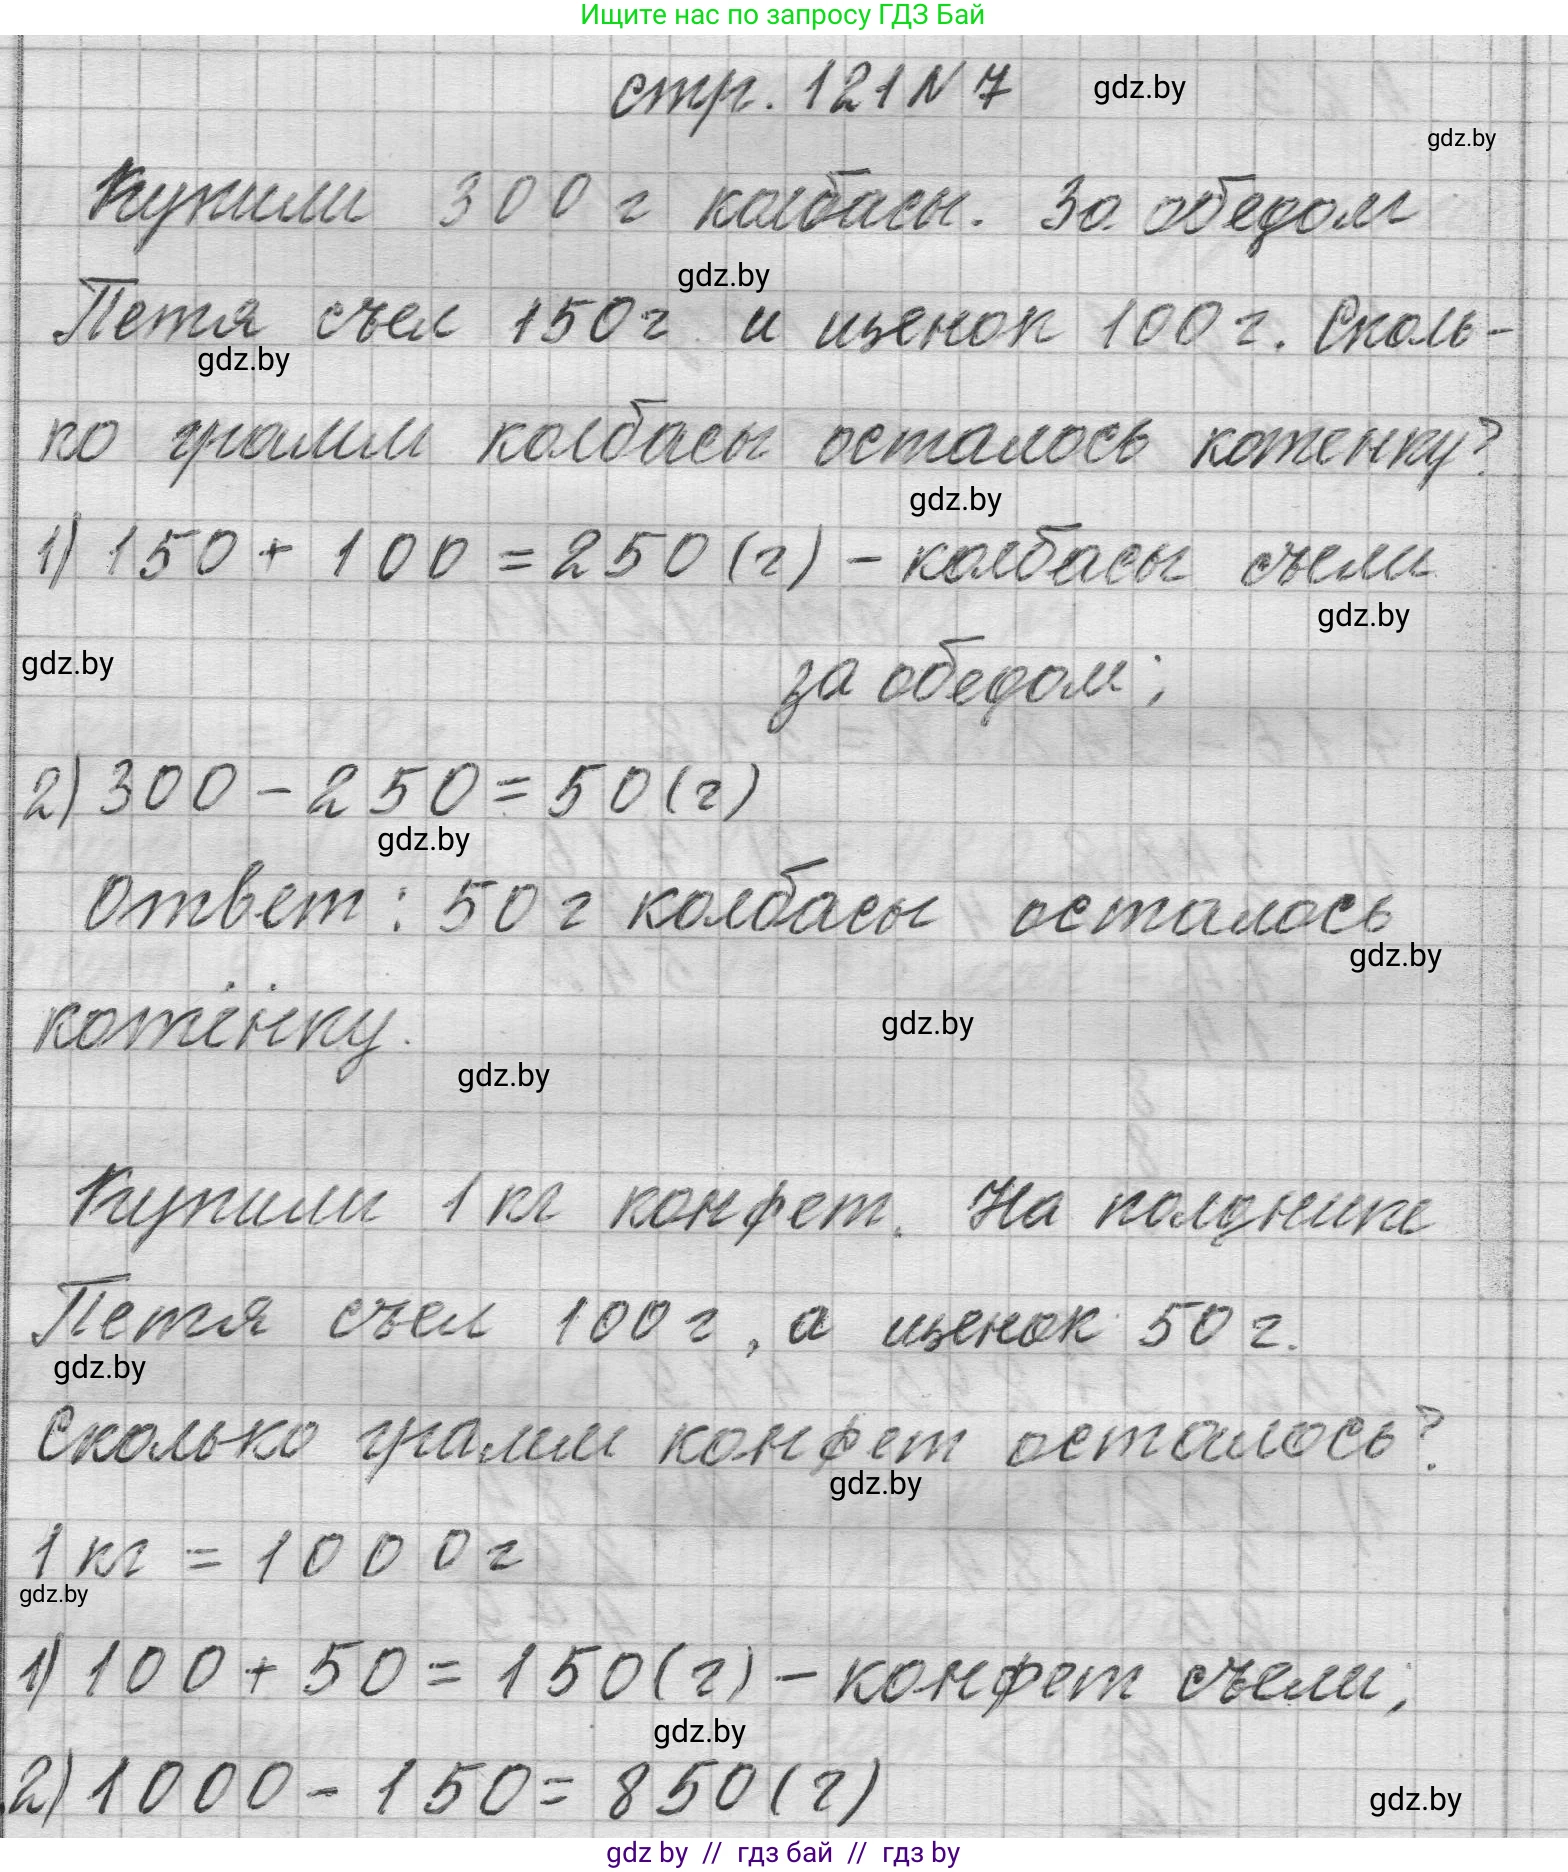 Ищите нас по запросу ГДЗ Бай
стр. 121 N 7
gdz.by
gdz.by
Купили 300 г колбасы. За обедом
gdz.by
Петя съел 150 г и щенок 100 г. Сколь-
gdz.by
ко грамм колбасы осталось котенку?
gdz.by
1) 150 + 100 = 250 (г) - колбасы съели
gdz.by
gdz.by
за обедом;
2) 300 - 250 = 50 (г)
gdz.by
Ответ: 50 г колбасы осталось
gdz.by
котёнку.
gdz.by
gdz.by
Купили 1 кг конфет. На полднике
Петя съел 100 г, а щенок 50 г.
gdz.by
Сколько грамм конфет осталось?
gdz.by
1 кг = 1000 г
gdz.by
1) 100 + 50 = 150 (г) - конфет съели;
gdz.by
2) 1000 - 150 = 850 (г)
gdz.by
gdz by // гдз бай // гдз by